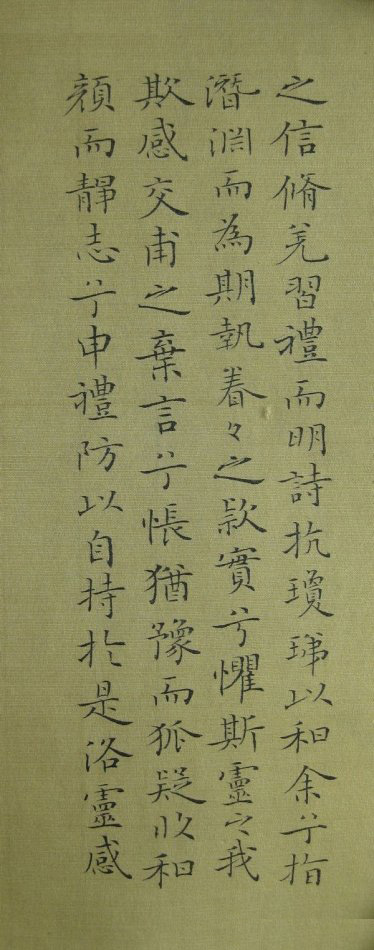 之信脩羌習禮而明詩抗瓊珶以和余兮指
潛淵而為期執眷々之款實兮懼斯靈之我
欺感交甫之棄言兮悵猶豫而狐疑收和
顏而靜志兮申禮防以自持於是洛靈感